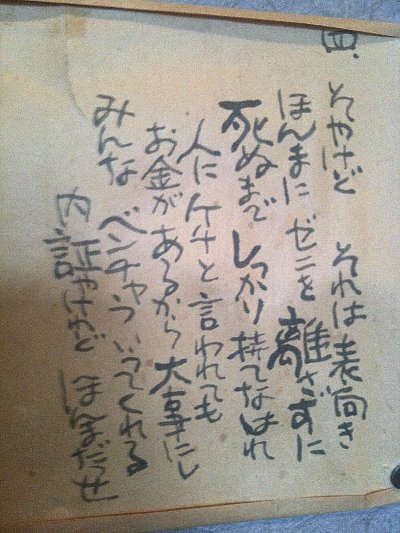 四、そやけど それは表向き
ほんまに ゼニを離さずに
死ぬまで しっかり持てなはれ
人にケチと言われても
お金があるから大事にし
みんな ベンチャラいうてくれる
内証やけど ほんまだっせ